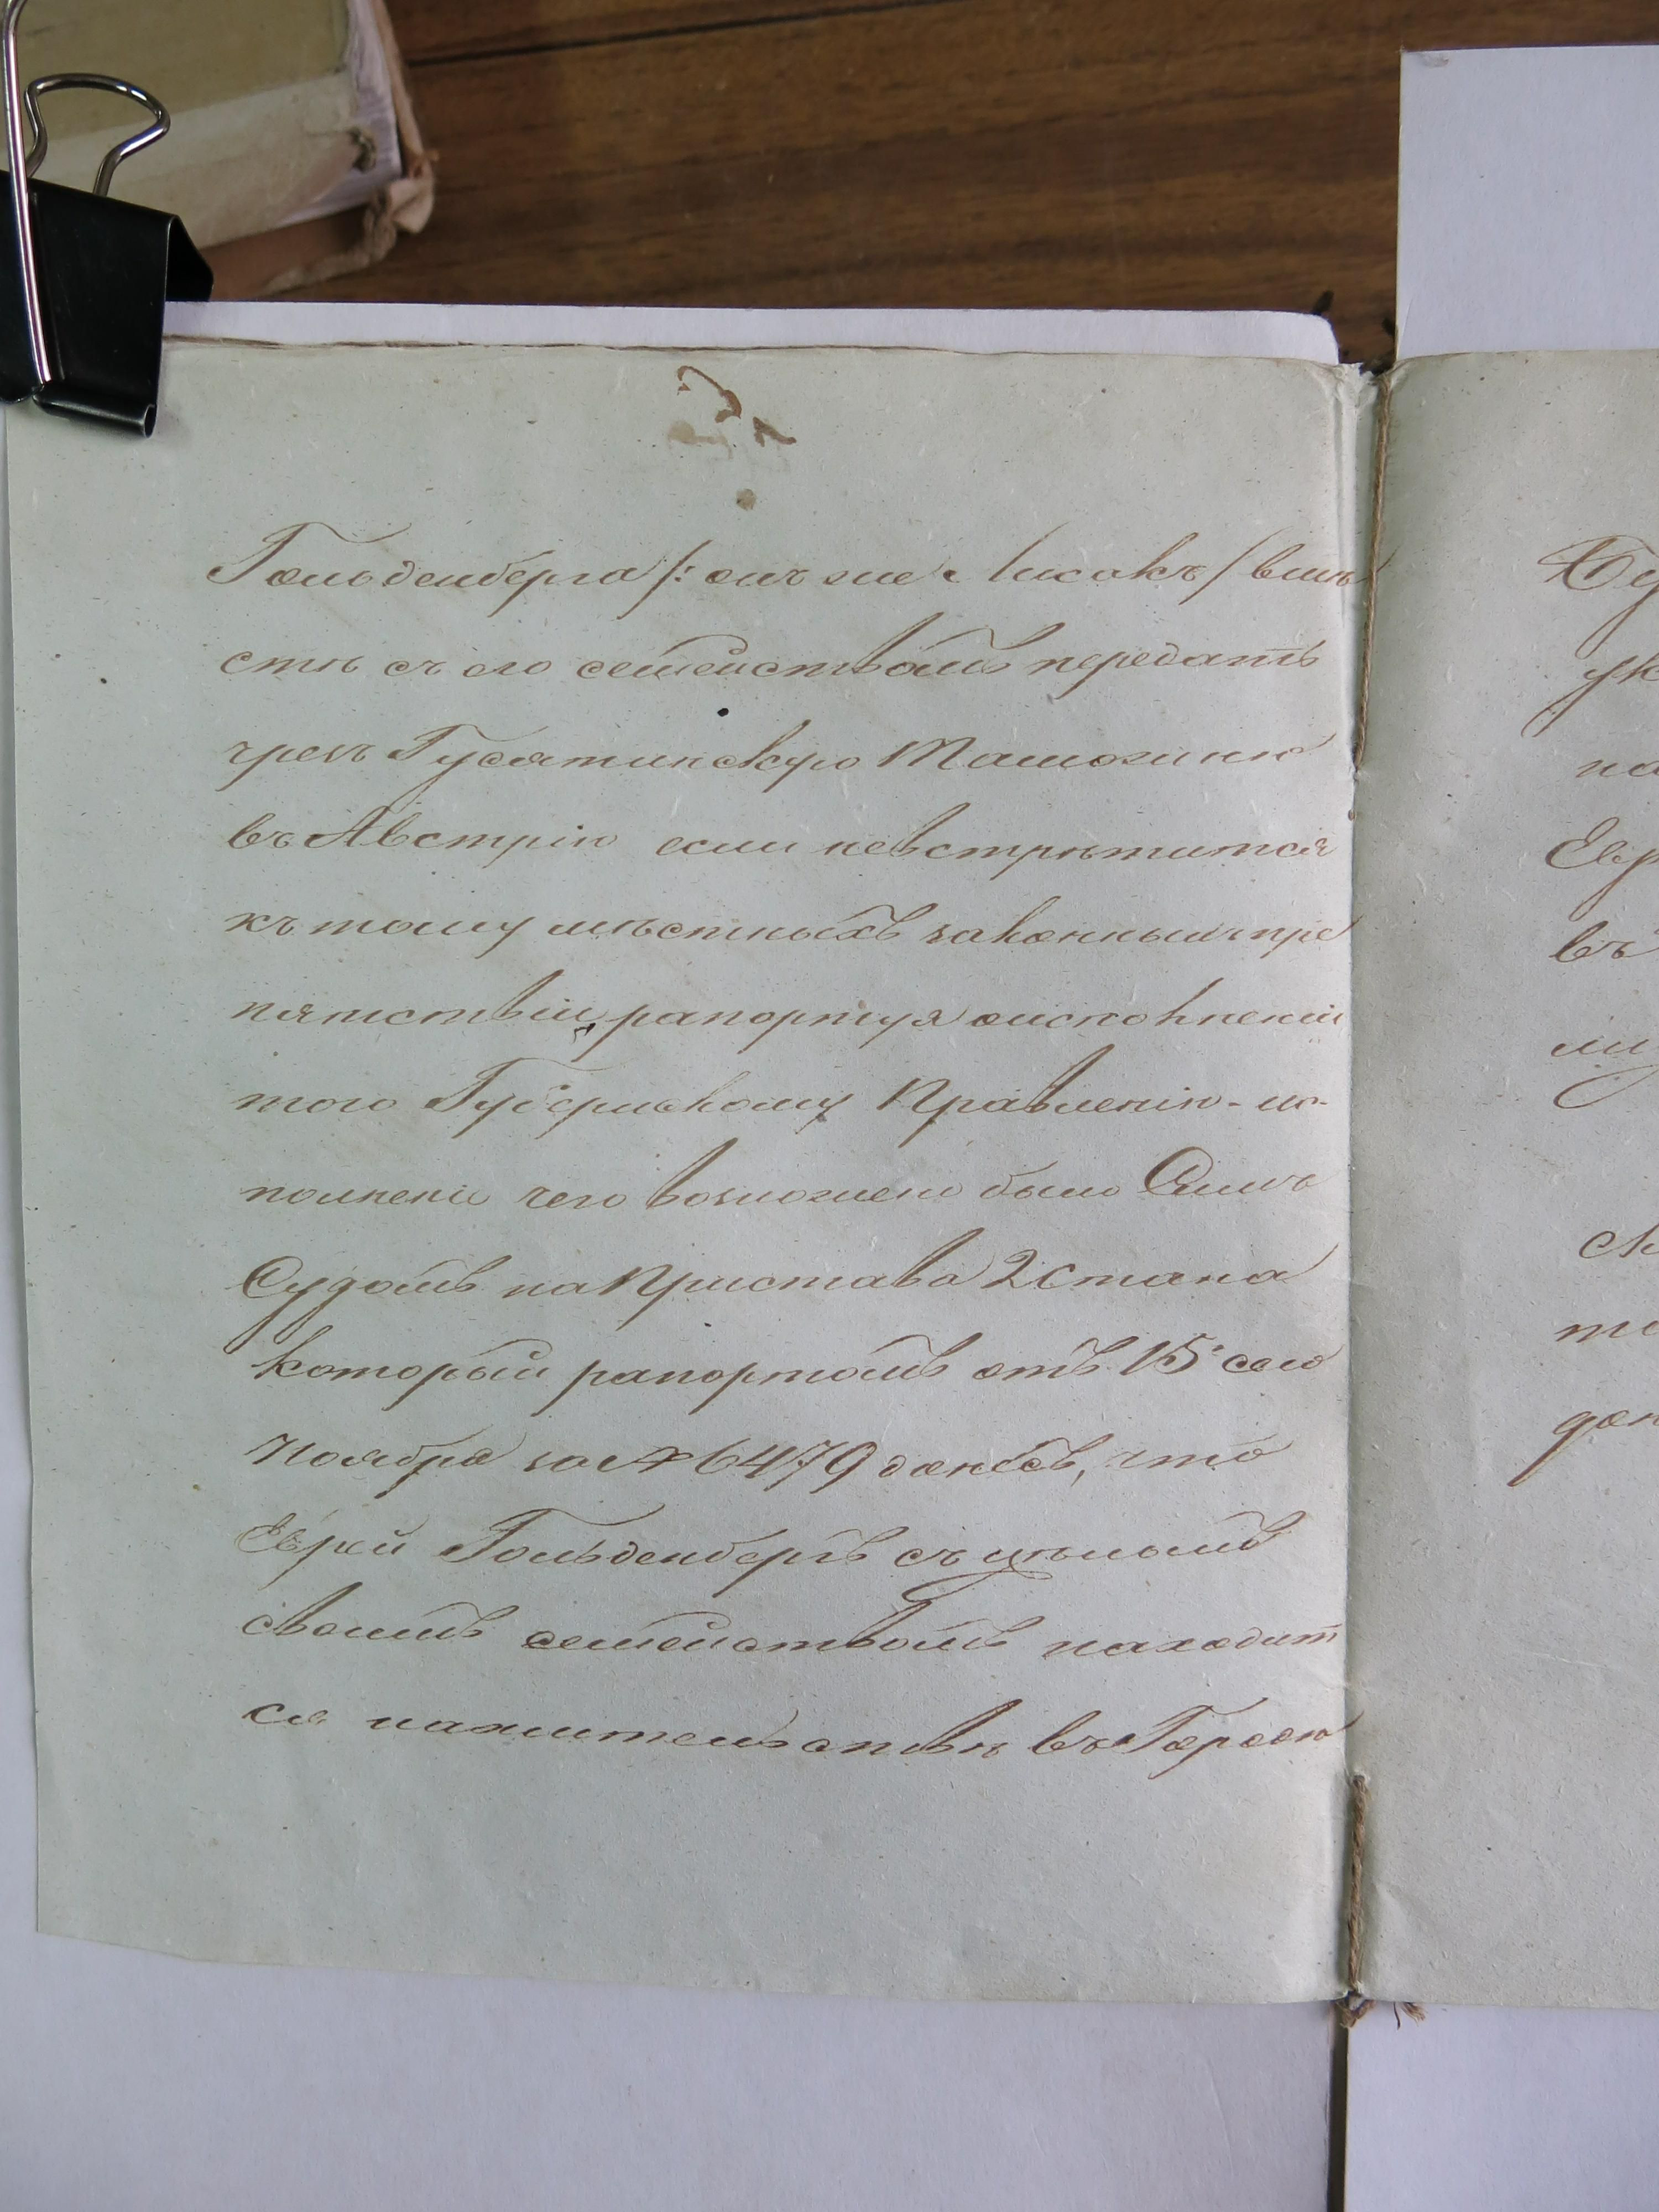 Гольденберга /: онъ же Лисакъ / вмѣ
стѣ съ его семействомъ передать
чрезъ Гусятинскую Таможню
въ Австрію если невстрѣтится
къ тому мѣстныхъ законныхъ пре
пятствій, рапортуя оисполненіи
того Губернскому Правленію - ис-
полненіе чего возложено было Симъ
Судомъ на Пристава 2 Стана
который рапортомъ отъ 15 сего
Ноября за № 6479 донесъ, что
Еврей Гольденбергъ съ цѣлымъ
своимъ семействомъ находит
ся нажительствѣ въ Городѣ
Ев
въ